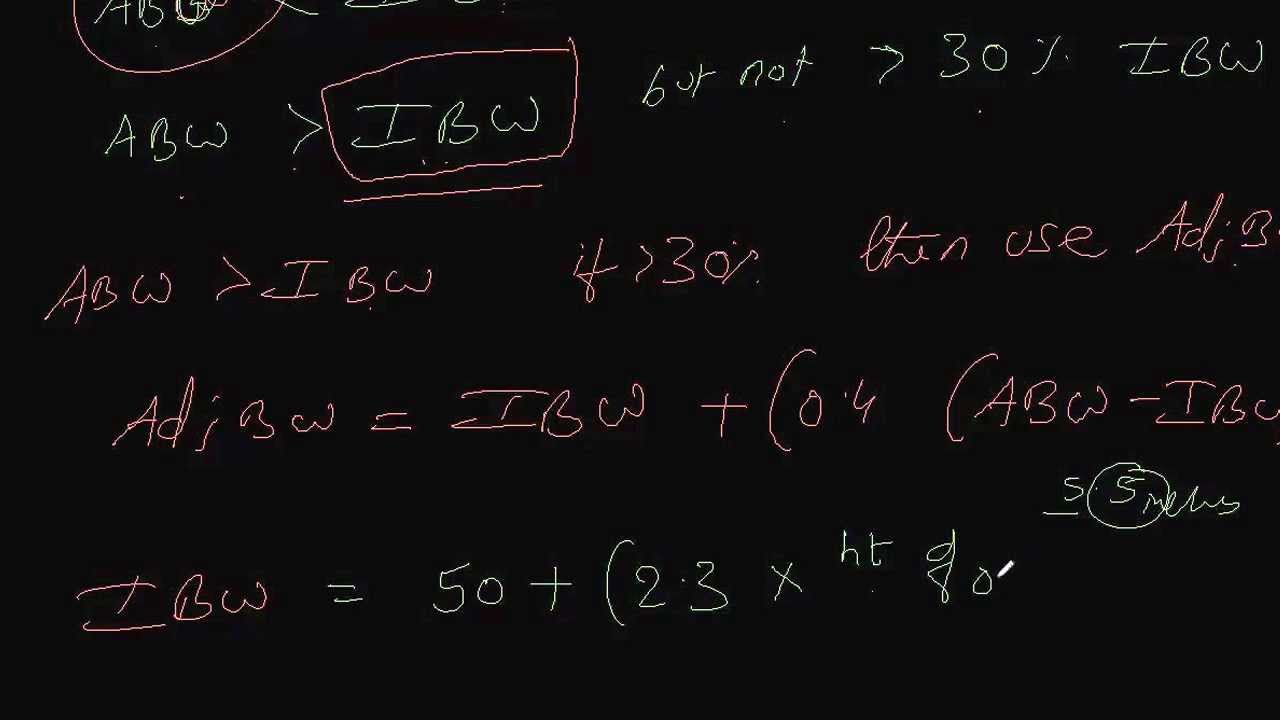 ABW
ABW > IBW but not > 30% IBW
ABW > IBW if >30% then use AdjB
AdjBW = IBW + (0.4 (ABW - IBW
5.5 inches
IBW = 50 + (2.3 x ht